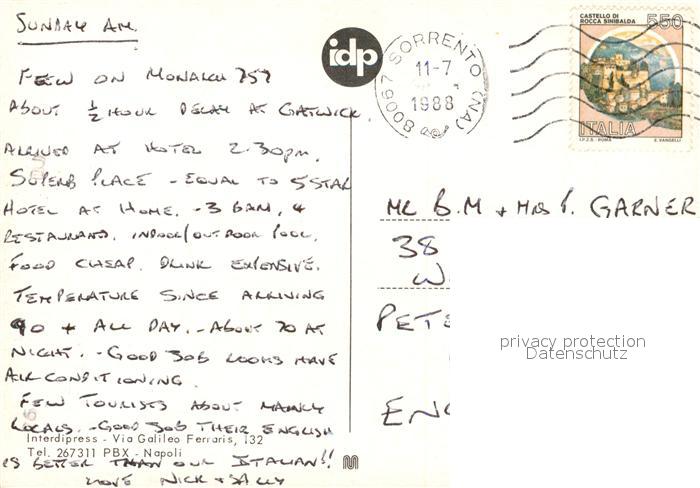 SUNDAY AM.
FLEW ON MONARCH 757
ABOUT ½ HOUR DELAY AT GATWICK.
ARRIVED AT HOTEL 2.30pm.
SUPERB PLACE - EQUAL TO 5 STAR
HOTEL AT HOME. - 3 BARS, 4
RESTAURANTS. INDOOR/OUTDOOR POOL.
FOOD CHEAP. DRINK EXPENSIVE.
TEMPERATURE SINCE ARRIVING
90 + ALL DAY. - ABOUT 70 AT
NIGHT. - GOOD JOB ROOMS HAVE
AIR CONDITIONING.
FEW TOURISTS ABOUT MAINLY
LOCALS. - GOOD JOB THEIR ENGLISH
IS BETTER THAN OUR ITALIAN!!
LOVE NICK + SALLY
Interdipress - Via Galileo Ferraris, 132
Tel. 267311 PBX - Napoli
idp
80067 SORRENTO (NA)
11-7
1988
CASTELLO DI
ROCCA SINIBALDA
550
ITALIA
I.P.Z.S. - ROMA
E. VANGELLI
MR B.M + MRS P. GARNER
38
W
PETE
ENG
privacy protection
Datenschutz